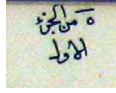 ٥ من الجزء
الأول